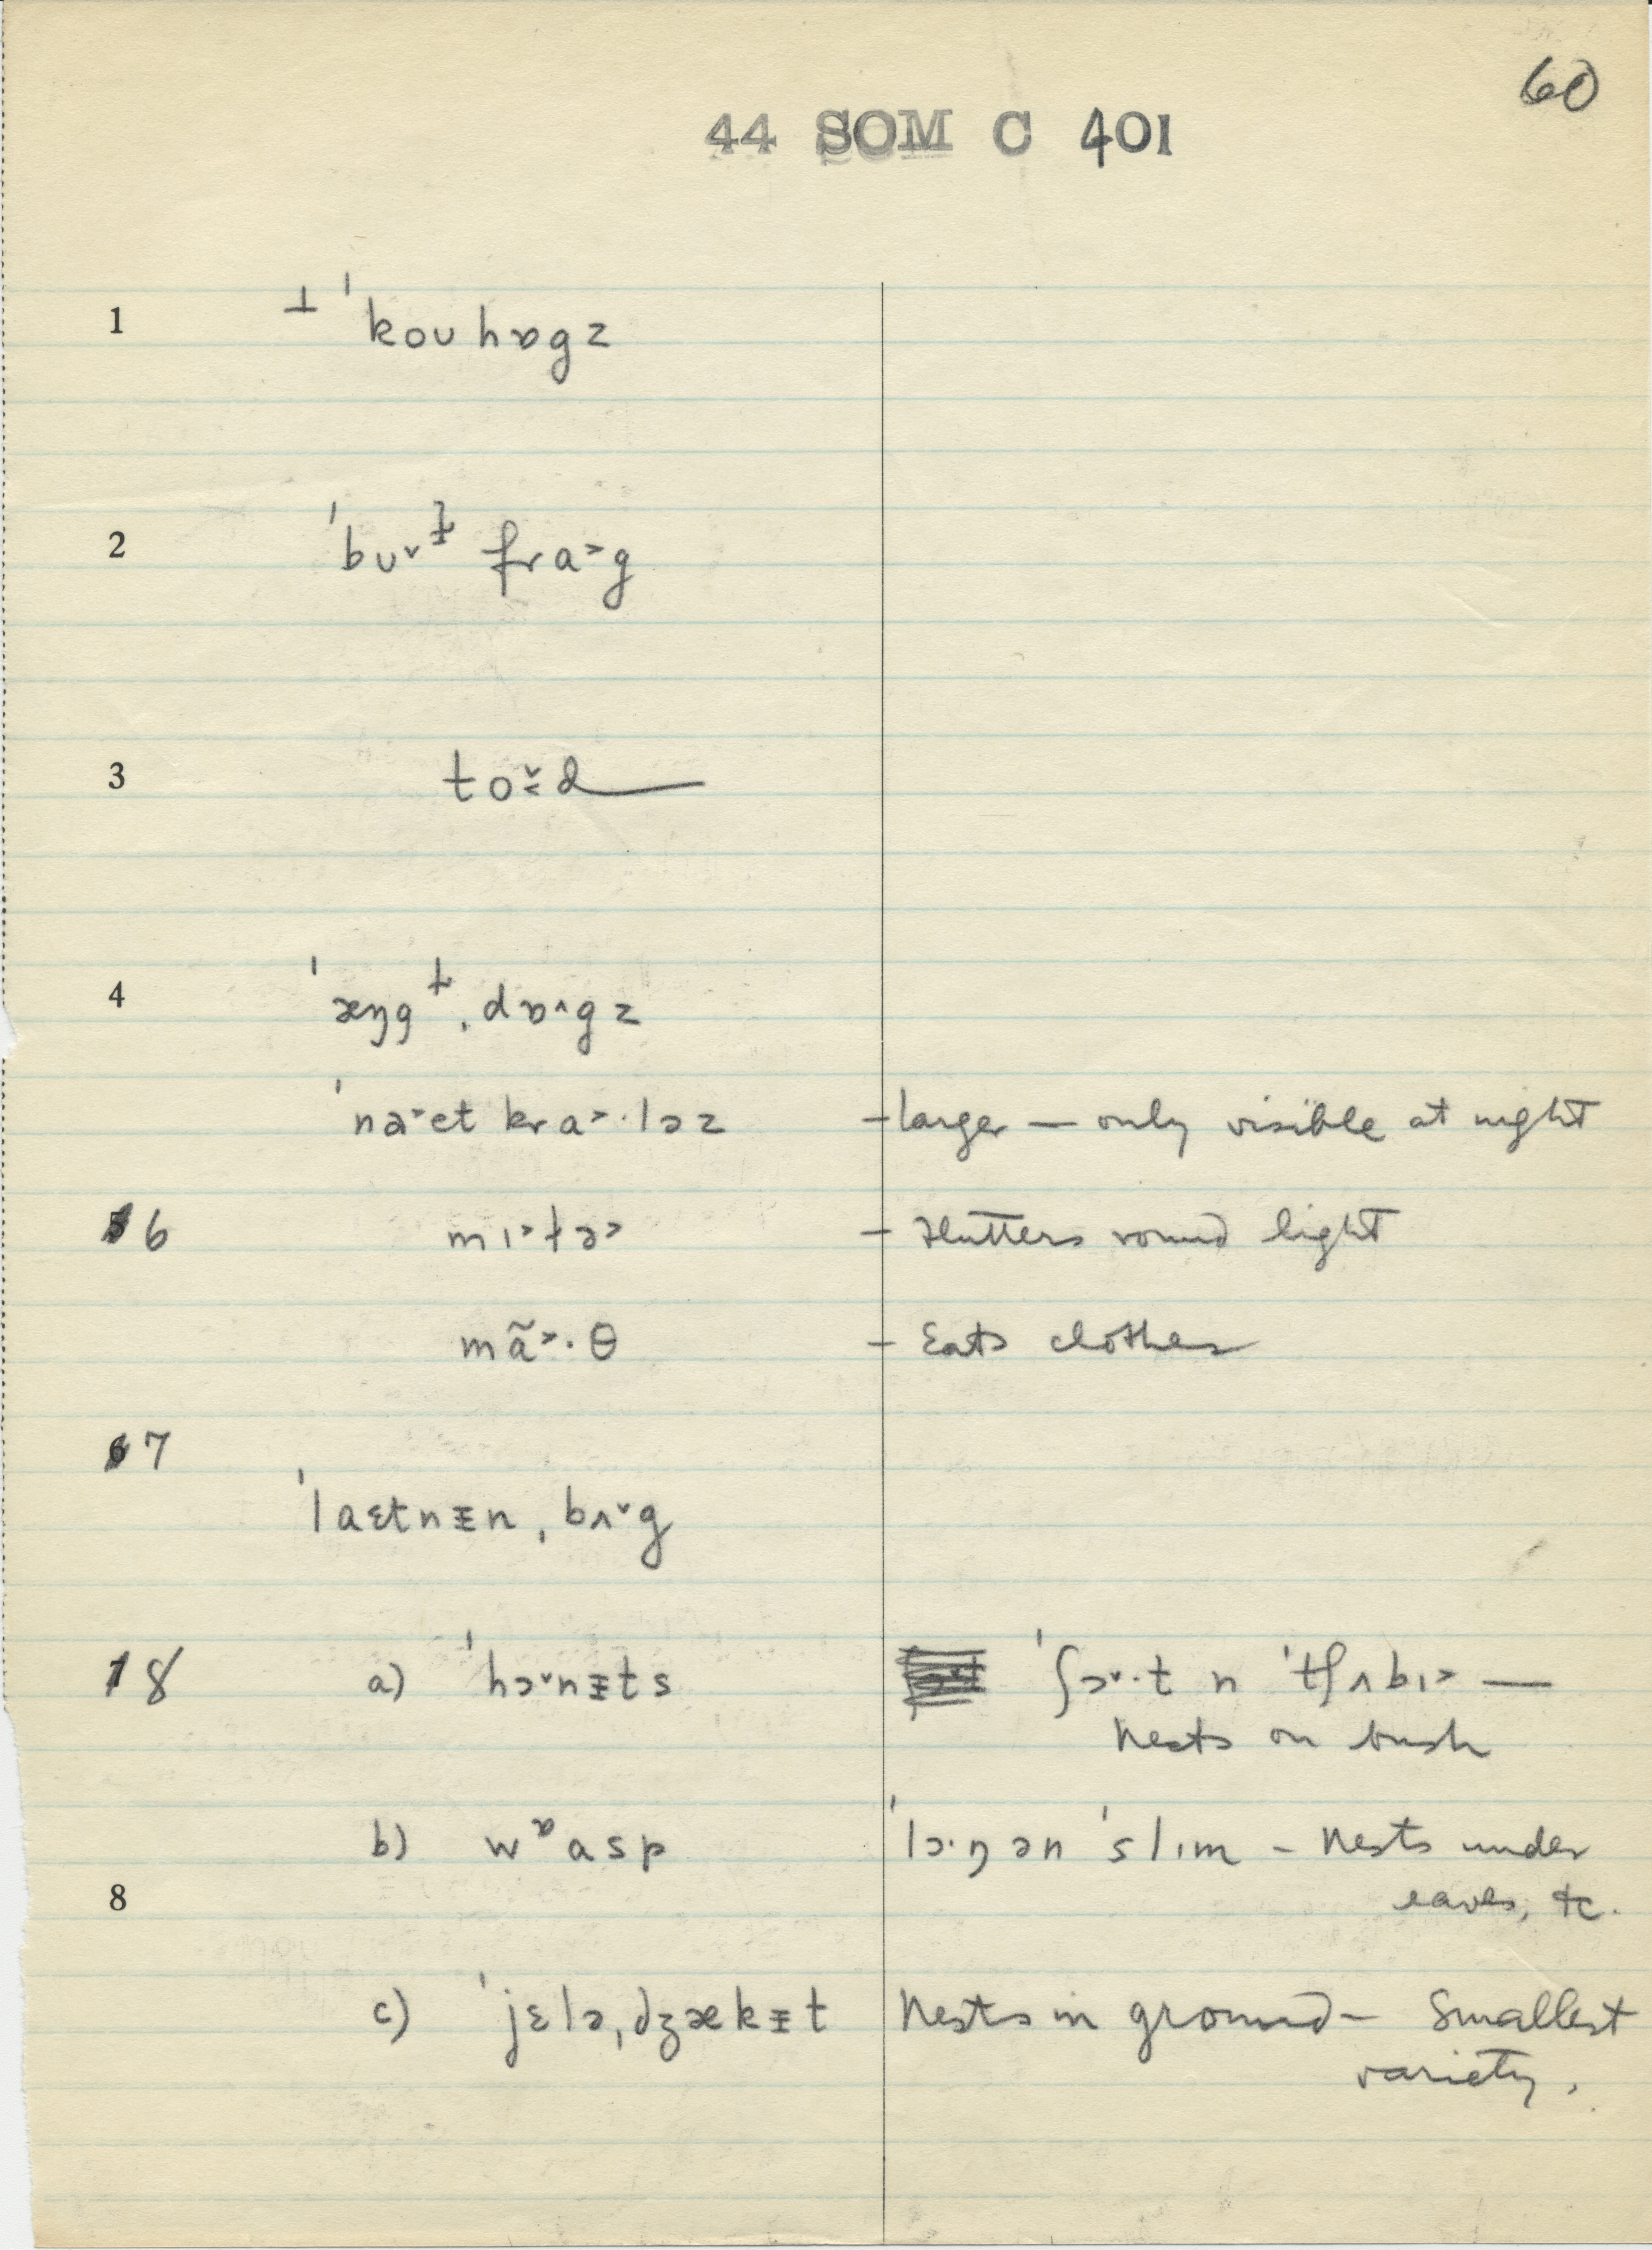 60
44 SOM C 401
1 ⊥ ˈkoʊhɒgz
2 ˈbʊ˅ɫ fra˃g
3 to˅˂d
4 ˈæŋgɫˌdɒ˄gz
ˈnɜ˅et kra˃·ləz – larger – only visible at night
6 mɪ˃tə˃ – Flutters round light
mã˃·θ – Eats clothes
7
ˈlaɛtnɪ̵nˌbʌ˅g
8 a) ˈhɔ˅nɪ̵ts ˈʃɔ˅·t n ˈtʃʌbɪ˃ —
Nests on bush
b) wᶛasp ˈlɔ·ŋ ən ˈslɪm – Nests under
8 eaves, etc.
c) ˈjɛləˌdʒækɪ̵t Nests in ground – Smallest
variety.